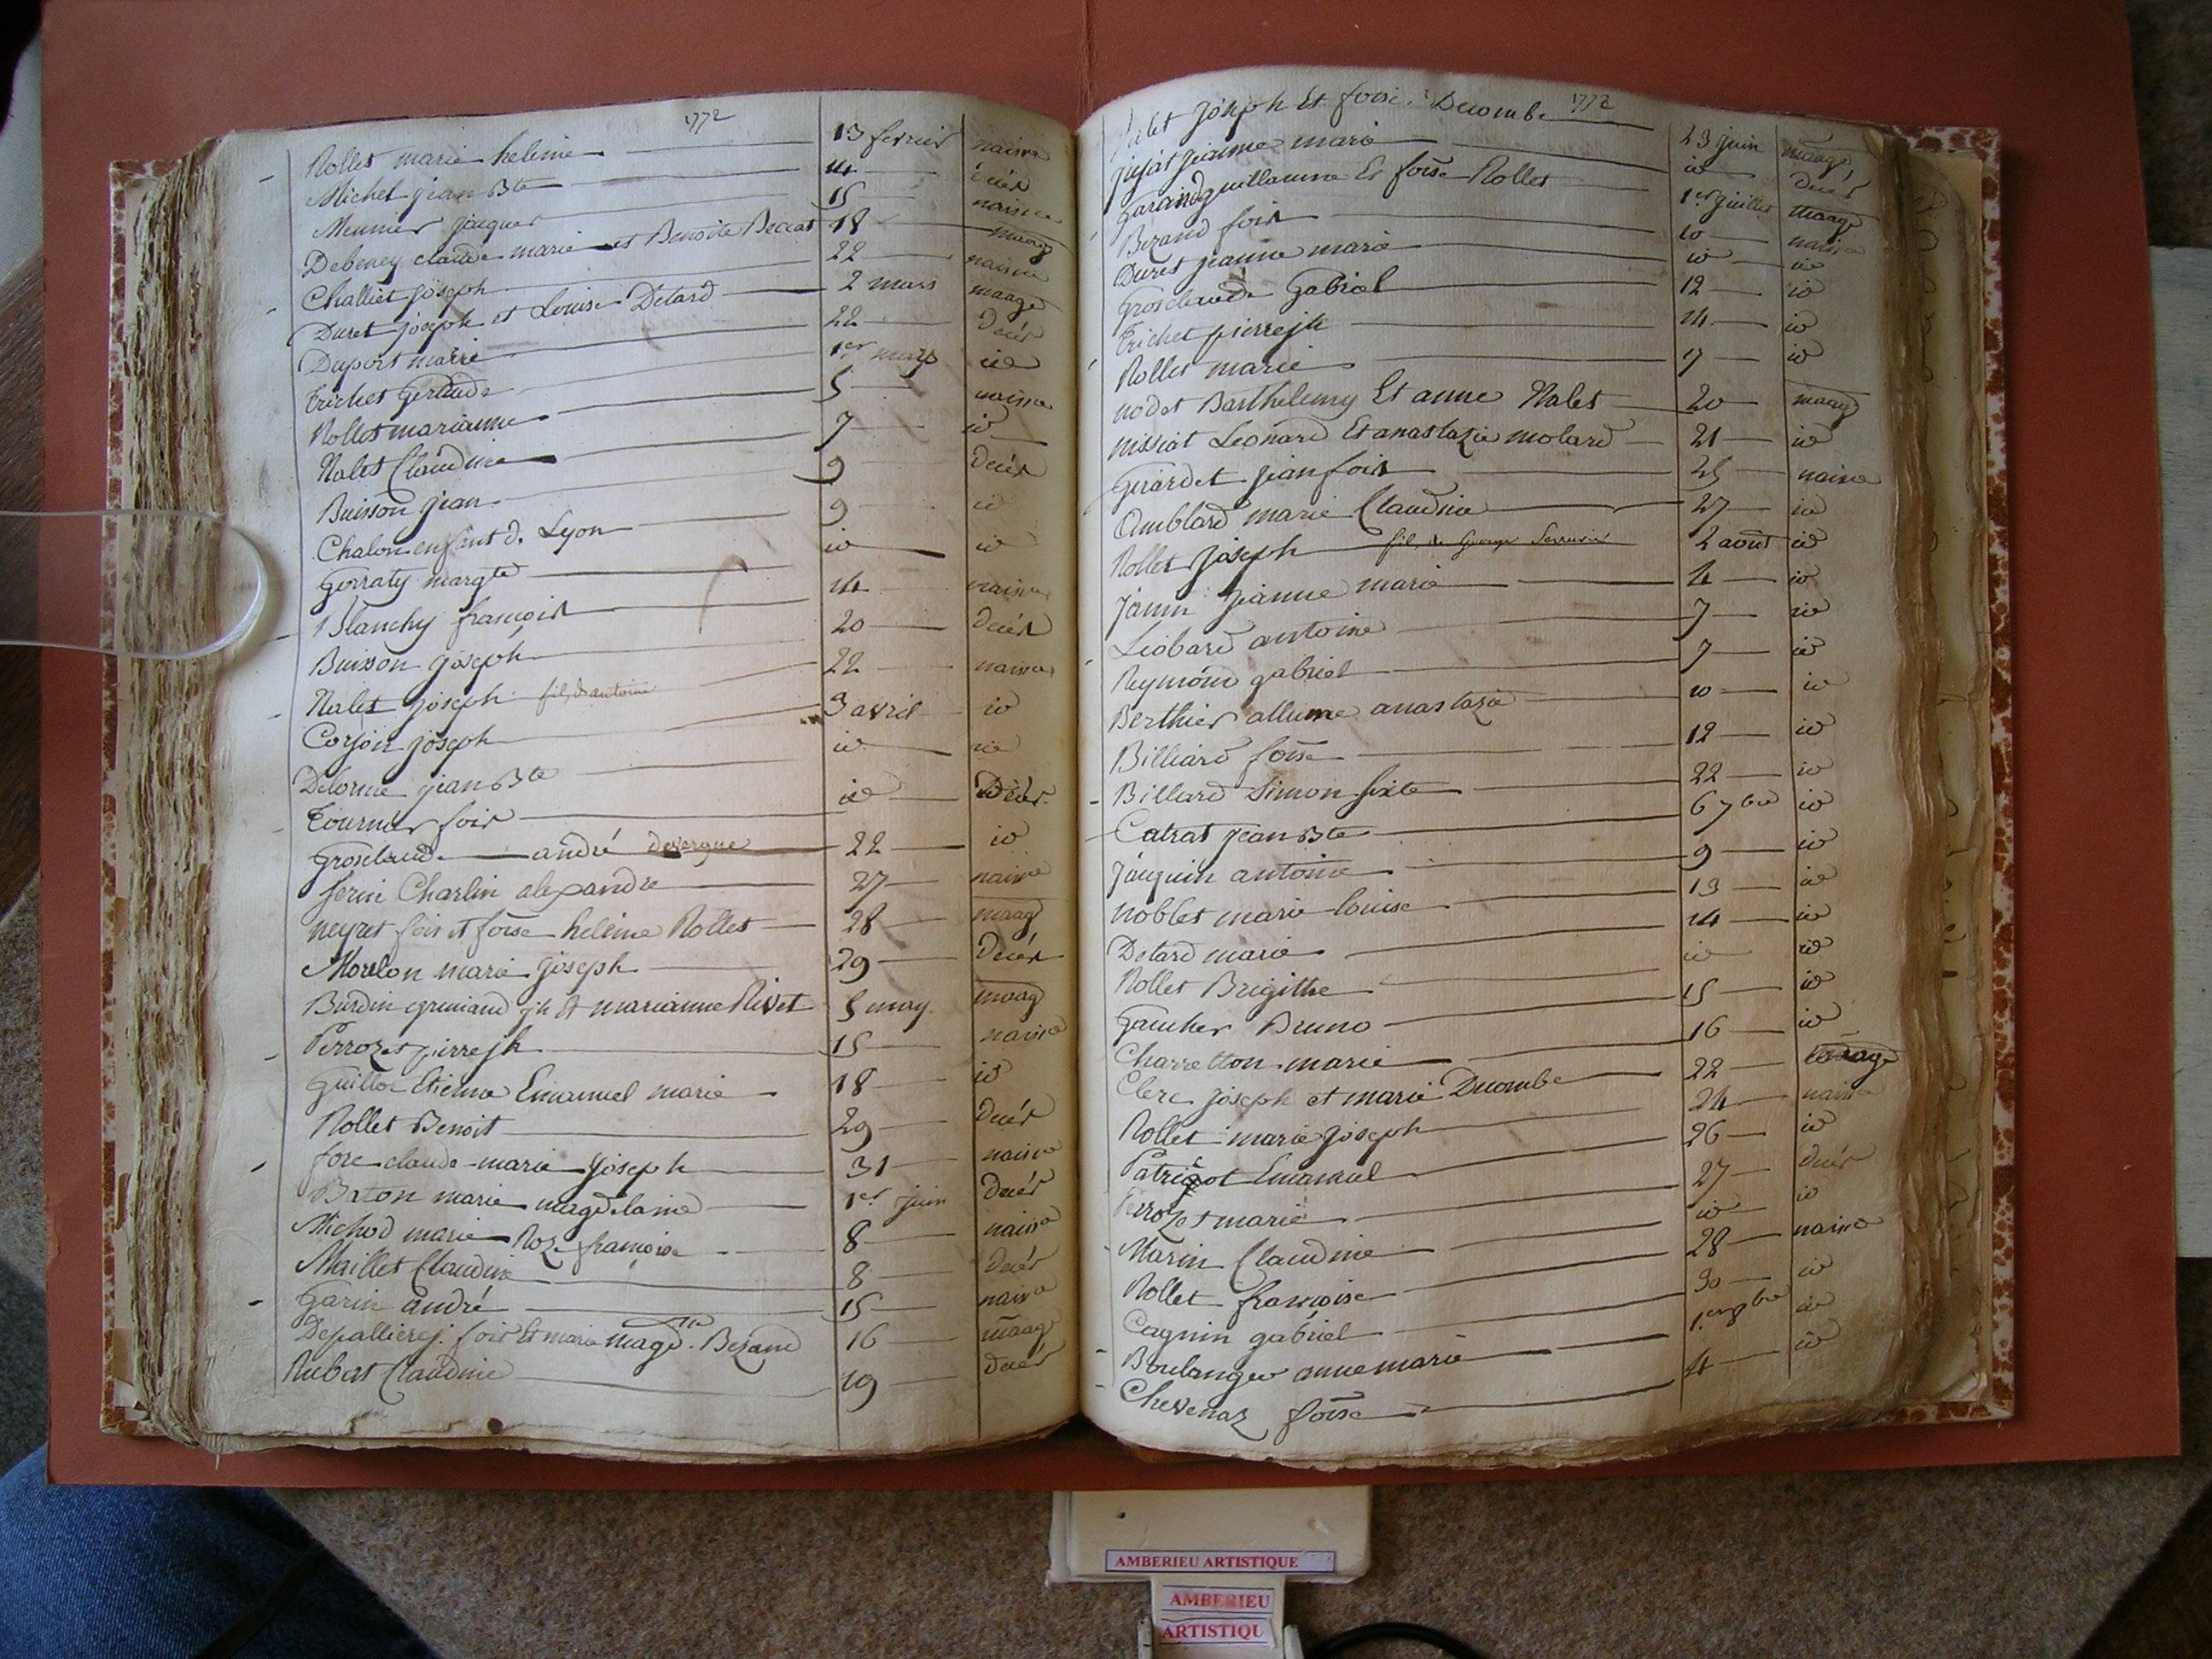 1772
Rollet marie helene 13 fevrier naissce
Michel jean Bte 14 décès
Meunier jacques 15 naissce
Debeney claude marie et Benoite Beccat 18 maage
Challiet joseph 22 naissce
Duret joseph et Louise Detard 2 mars maage
Duport marie 22 Décès
Trichet Gertude 1er mars id
Rollet marianne 5 naissce
Nalet Claudine 7 id
Buisson jean 9 Décès
Chalon enfant de Lyon 9 id
Gorraty margte id id
Blanchy françois 14 naissce
Buisson joseph 20 Décès
Nalet joseph fils d'antoine 22 naissce
Corjon joseph 3 avril id
Delorme jean Bte id id
Tournier fois id Décès
Grosclaude andré devergne 22 id
ferin Charlin alexandre 27 naissce
neyret fois et foise helene Rollet 28 maage
Morelon marie joseph 29 Décès
Burdin jh et marianne Rivet 5 may maage
Perrozet pierre jh 15 naissce
Guillot Etienne Emanuel marie 18 id
Rollet Benoit 29 Décès
fore claude marie joseph 31 naissce
Baton marie magdelaine 1er juin Décès
Michod marie Roze françoise 8 naissce
Maillet Claudine 8 Décès
Garin andré 15 naissce
Depallierej. fois Et marie magd. Bezand 16 maage
Rubat Claudine 19 Décès
1772
joseph Et foise Decombe 23 juin maage
jujat jeanne marie id Décès
Garaind guillaume Et foise Rollet 1er juillet maage
Bezand fois 10 naissce
Duret jeanne marie id id
Grosclaude Gabriel 12 id
Trichet pierre jh 14 id
Rollet marie 17 id
nodet Barthelemy Et anne Nalet 20 maage
missiat Leonard Et anastazie molard 21 id
Girardet jean fois 25 naissce
Amblard marie Claudine 27 id
Rollet joseph fils de George Serrurier 2 août id
Janin jeanne marie 4 id
Liobard antoine 7 id
Reymond gabriel 7 id
Berthier allume anastazie 10 id
Billiard foise 12 id
Billiard Simon sixte 22 id
Catrat jean Bte 6 7bre id
jauquin antoine 9 id
noblet marie louise 13 id
Detard marie 14 id
Rollet Brigithe id id
Gaucher Bruno 15 id
Charretton marie 16 id
Clerc joseph et marie Decombe 22 maage
Rollet marie joseph 24 naissce
Patriçot Emanuel 26 id
Perrozet marie 27 décès
Marin Claudine id id
Rollet françoise 28 naissce
Cagnin gabriel 30 id
Boulanger anne marie 1er 8bre id
Chevenaz foise 4 id
AMBERIEU ARTISTIQUE
AMBERIEU
ARTISTIQU